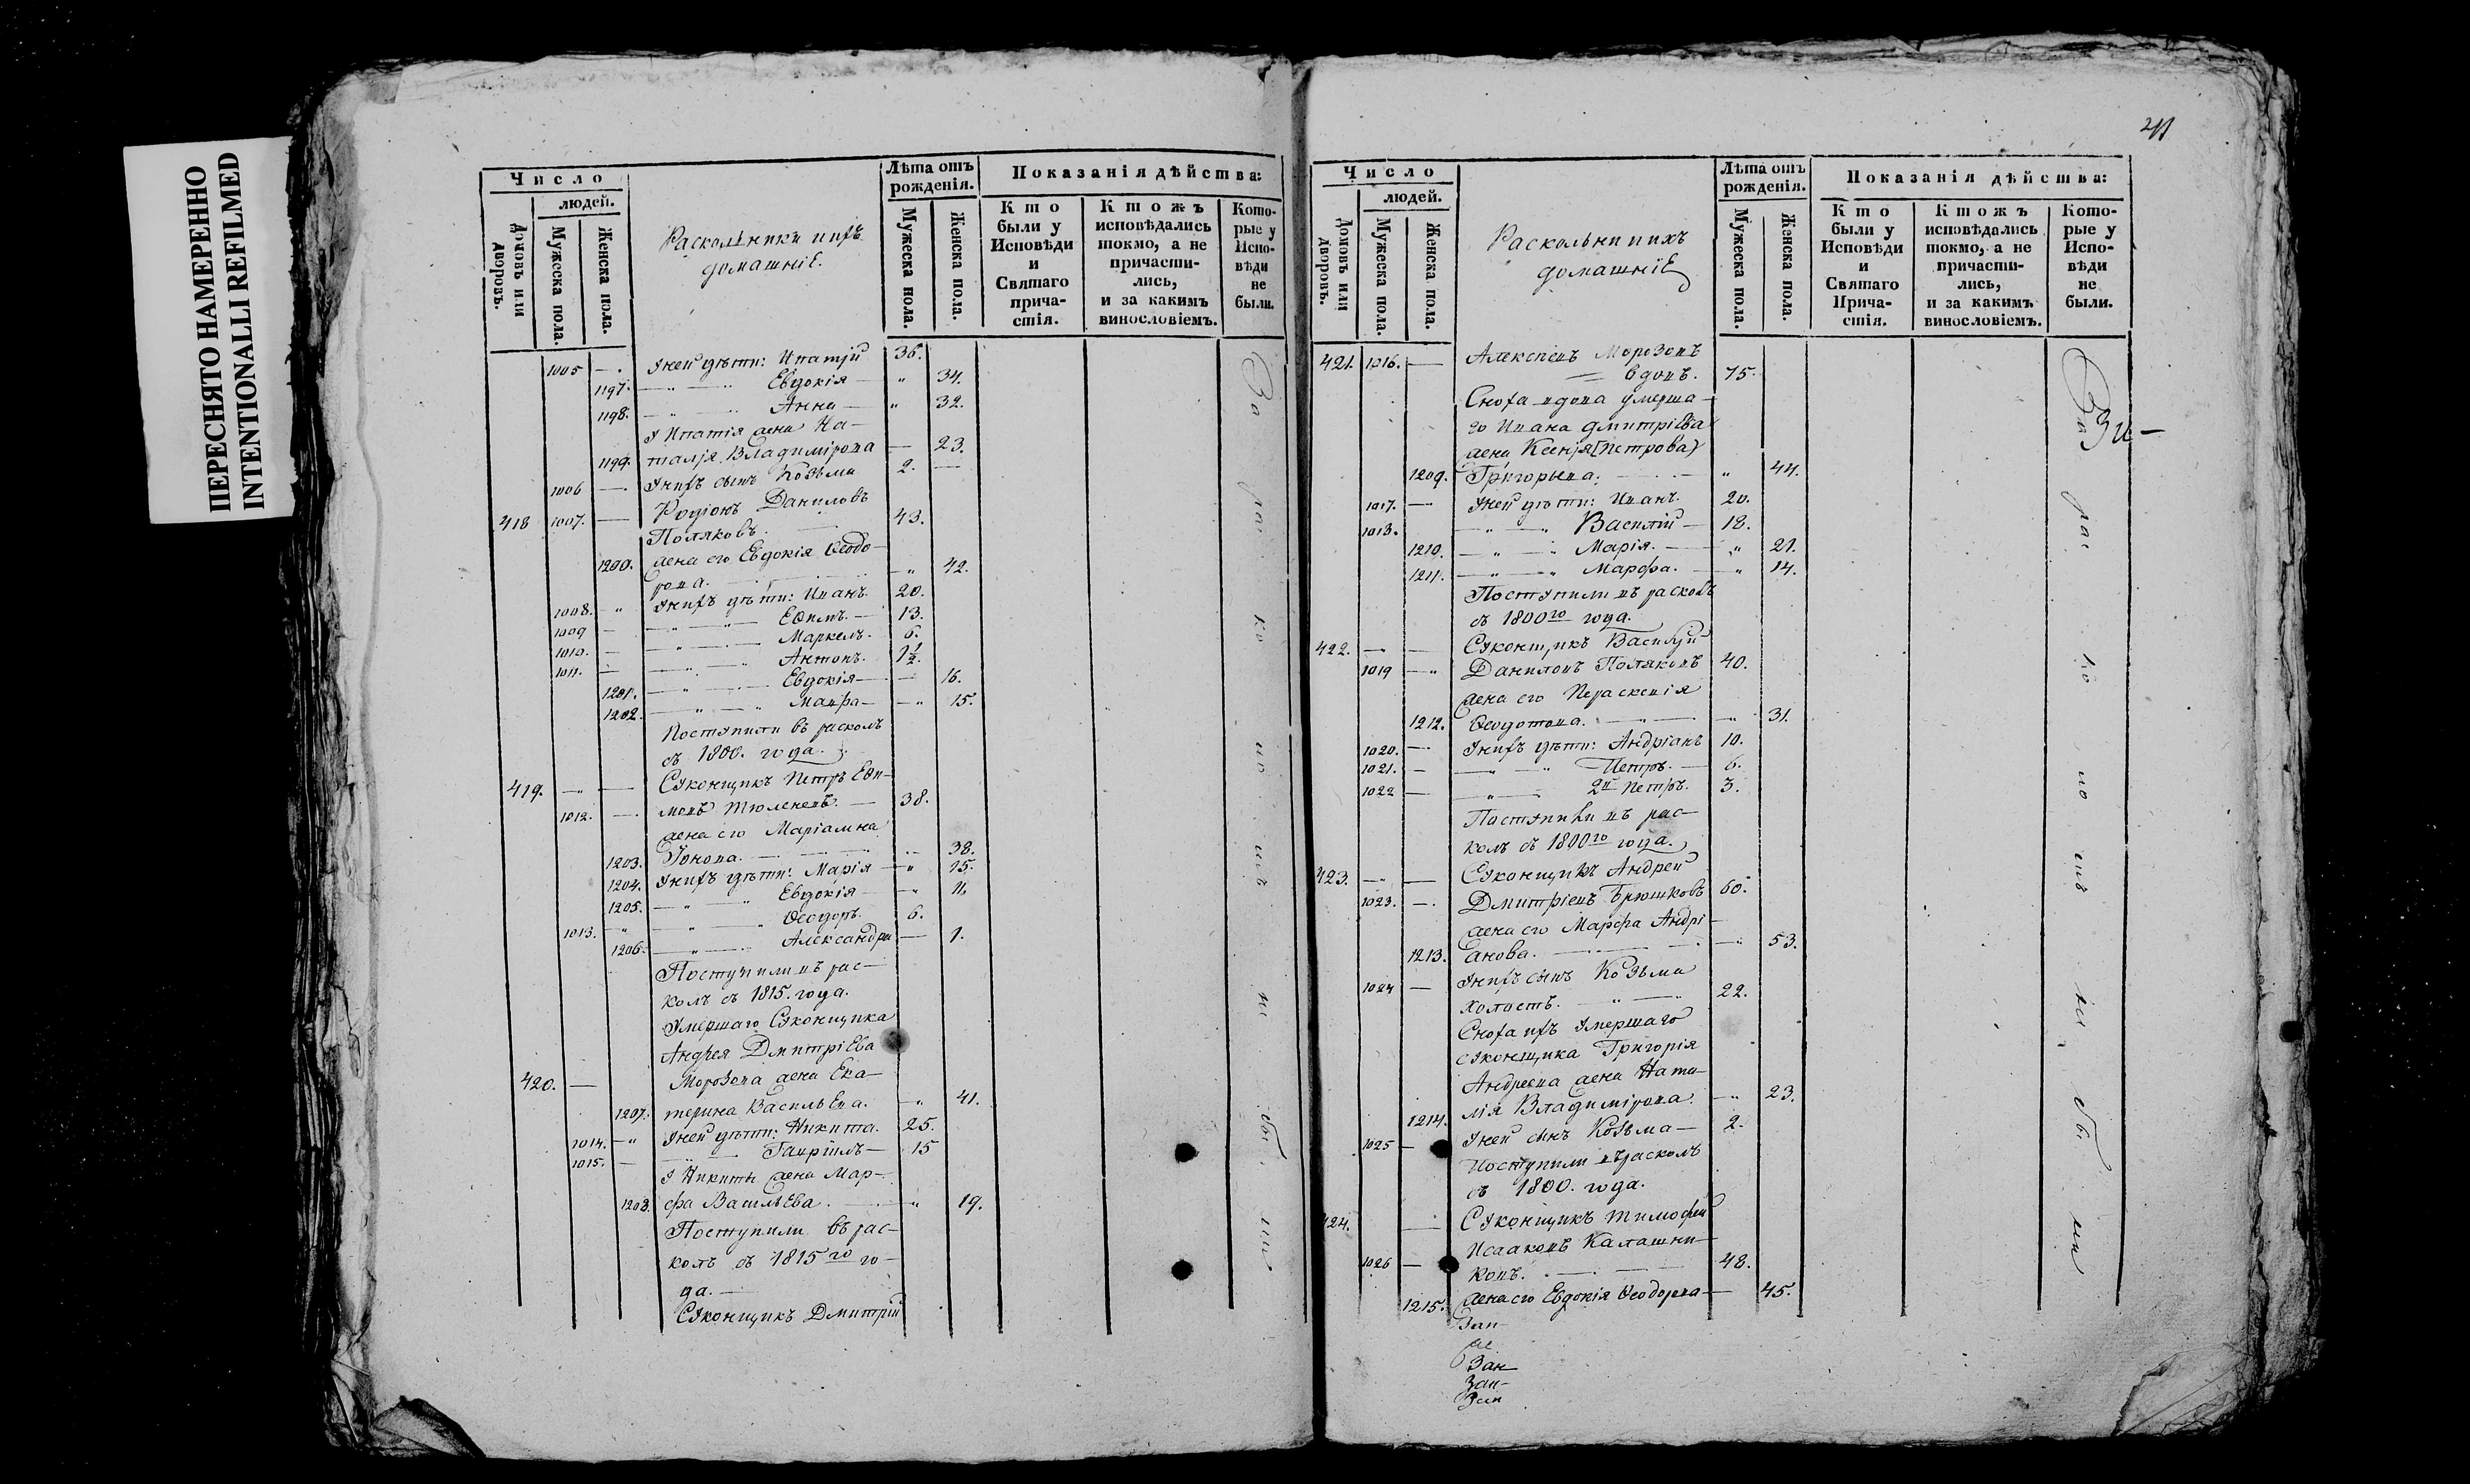 ПЕРЕСНЯТО НАМЕРЕННО
INTENTIONALLI REFILMED
Число
людей.
Домовъ или дворовъ.
Мужеска пола.
Женска пола.
Раскольники ихъ
домашніе.
Лѣта отъ
рожденія.
Мужеска пола.
Женска пола.
Показанія дѣйства:
Кто
были у
Исповѣди
и
Святаго
прича-
стія.
Ктожъ
исповѣдались
токмо, а не
причасти-
лись,
и за какимъ
винословіемъ.
Кото-
рые у
Испо-
вѣди
не
были.
1005 — У ней дѣти: Ипатій 36.
1197. Евдокія — „ 34.
1198. Анна — „ 32.
У Ипатія жена На-
1199. талія Владимірова — 23.
1006 — У нихъ сынъ Козьма 2. —
418 1007. — Родіонъ Даниловъ
Поляковъ. 43.
1200. жена его Евдокія Ѳеодо-
рова. „ 42.
1008. „ У нихъ дѣти: Иванъ. 20.
1009 — Ефимъ. — 13.
1010. — Маркелъ. 6.
1011. — Антонъ. 1½.
1201. Евдокія — 16.
1202. Мавра — „ 15.
Поступили въ расколъ
съ 1800. года.
419. Суконщикъ Петръ Ефи-
1012. — мовъ Тюленевъ — 38.
жена его Маріамна
1203. Іонова. 38.
1204. У нихъ дѣти: Марія — „ 15.
1205. Евдокія — „ 11.
1013. Ѳеодоръ. 6.
1206. Александра — 1.
Поступили въ рас-
колъ съ 1815. года.
Умершаго Суконщика
Андрея Дмитріева
420. — Морозова жена Ека-
1207. терина Васильева. — „ 41.
1014. — „ У ней дѣти: Никита. 25.
1015. — Гавріилъ — 15
У Никиты жена Мар-
1208. фа Васильева. „ 19.
Поступили въ рас-
колъ съ 1815го го-
да. —
Суконщикъ Дмитрій
За раско мъ не были
41
Число
людей.
Домовъ или дворовъ.
Мужеска пола.
Женска пола.
Раскольники ихъ
домашніе
Лѣта отъ
рожденія.
Мужеска пола.
Женска пола.
Показанія дѣйства:
Кто
были у
Исповѣди
и
Святаго
Прича-
стія.
Ктожъ
исповѣдались
токмо, а не
причасти-
лись,
и за какимъ
винословіемъ.
Кото-
рые у
Испо-
вѣди
не
были.
421. 1016. — Алексѣевъ Морозовъ
вдовъ. 75.
Сноха вдова умерша-
го Ивана Дмитріева
жена Ксенія (Петрова)
1209. Григорьева. „ 44.
1017. — У ней дѣти: Иванъ. 20.
1018. Василій — 18.
1210. Марія. — „ 21.
1211. Марфа. — „ 14.
Поступили въ расколъ
съ 1800го года.
422. — Суконщикъ Василій
1019 — „ Даниловъ Поляковъ 40.
жена его Параскевія
1212. Ѳеодотова. „ 31.
1020. — У нихъ дѣти: Андріанъ 10.
1021. — Петръ. — 6.
1022 — 2й Петръ. 3.
Поступили въ рас-
колъ съ 1800го года.
423. — Суконщикъ Андрей
1023. — Дмитріевъ Брюшковъ 60.
жена его Марфа Андрі-
1213. анова. „ 53.
1024 — У нихъ сынъ Козьма
холостъ. 22.
Сноха ихъ умершаго
суконщика Григорія
Андреева жена Ната-
1214. лія Владимірова. „ 23.
1025 — У ней сынъ Козьма — 2.
Поступили въ расколъ
съ 1800. года.
424. — Суконщикъ Тимофей
Исааковъ Калашни-
1026 — ковъ. 48.
1215. жена его Евдокія Ѳеодорова — 45.
Зан
Зан
Зан
Зан